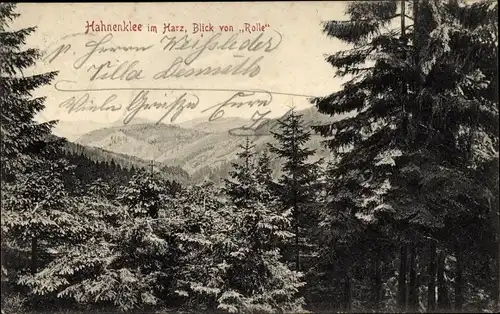 Hahnenklee im Harz, Blick von „Rolle"
p. Herrn Weissleder
Villa
Viele Grüsse Eure